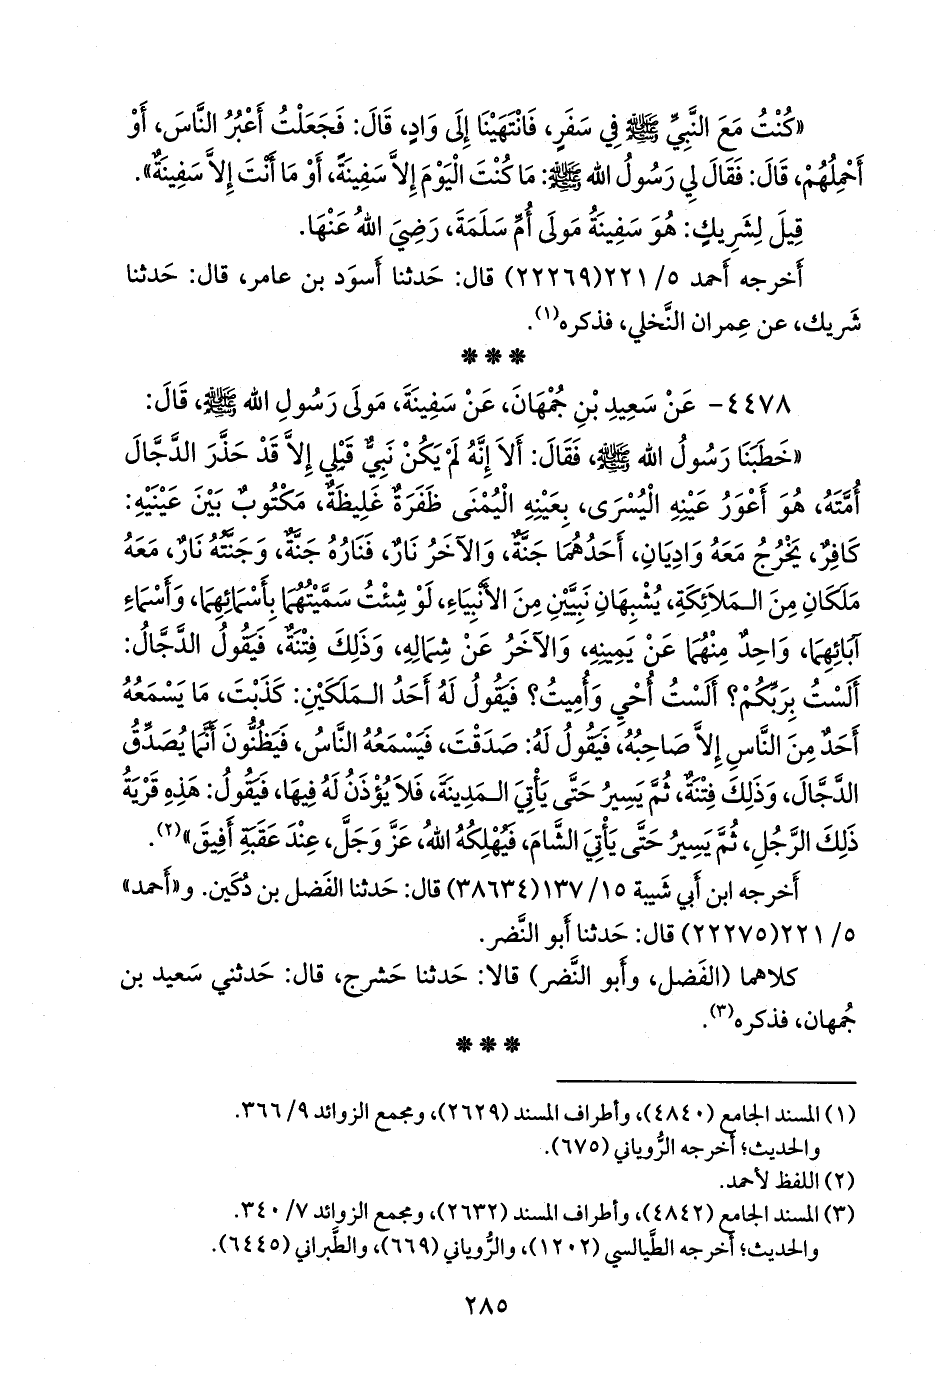 «كُنْتُ مَعَ النَّبِيِّ ﷺ فِي سَفَرٍ، فَانْتَهَيْنَا إِلَى وَادٍ، قَالَ: فَجَعَلْتُ أَعْبُرُ النَّاسَ، أَوْ
أَحْمِلُهُمْ، قَالَ: فَقَالَ لِي رَسُولُ الله ﷺ: مَا كُنْتَ الْيَوْمَ إِلاَّ سَفِينَةً، أَوْ مَا أَنْتَ إِلاَّ سَفِينَةٌ».
قِيلَ لِشَرِيكٍ: هُوَ سَفِينَةُ مَولَى أُمِّ سَلَمَةَ، رَضِيَ اللهُ عَنْهَا.
أَخرجه أَحمد ٥/ ٢٢١(٢٢٢٦٩) قال: حَدثنا أَسوَد بن عامر، قال: حَدثنا
شَريك، عن عِمران النَّخلي، فذكره(١).
***
٤٤٧٨- عَنْ سَعِيدِ بْنِ جُمْهَانَ، عَنْ سَفِينَةَ، مَولَى رَسُولِ الله ﷺ، قَالَ:
«خَطَبَنَا رَسُولُ الله ﷺ، فَقَالَ: أَلاَ إِنَّهُ لَمْ يَكُنْ نَبِيٌّ قَبْلِي إِلاَّ قَدْ حَذَّرَ الدَّجَّالَ
أُمَّتَهُ، هُوَ أَعْوَرُ عَيْنِهِ الْيُسْرَى، بِعَيْنِهِ الْيُمْنَى ظَفَرَةٌ غَلِيظَةٌ، مَكْتُوبٌ بَيْنَ عَيْنَيْهِ:
كَافِرٌ، يَخْرُجُ مَعَهُ وَادِيَانِ، أَحَدُهُمَا جَنَّةٌ، وَالآخَرُ نَارٌ، فَنَارُهُ جَنَّةٌ، وَجَنَّتُهُ نَارٌ، مَعَهُ
مَلَكَانِ مِنَ الـمَلاَئِكَةِ، يُشْبِهَانِ نَبِيَّيْنِ مِنَ الأَنْبِيَاءِ، لَوْ شِئْتُ سَمَّيْتُهُمَا بِأَسْمَائِهِمَا، وَأَسْمَاءِ
آبَائِهِمَا، وَاحِدٌ مِنْهُمَا عَنْ يَمِينِهِ، وَالآخَرُ عَنْ شِمَالِهِ، وَذَلِكَ فِتْنَةٌ، فَيَقُولُ الدَّجَّالُ:
أَلَسْتُ بِرَبِّكُمْ؟ أَلَسْتُ أُحْيِ وَأُمِيتُ؟ فَيَقُولُ لَهُ أَحَدُ الـمَلَكَيْنِ: كَذَبْتَ، مَا يَسْمَعُهُ
أَحَدٌ مِنَ النَّاسِ إِلاَّ صَاحِبُهُ، فَيَقُولُ لَهُ: صَدَقْتَ، فَيَسْمَعُهُ النَّاسُ، فَيَظُنُّونَ أَنَّمَا يُصَدِّقُ
الدَّجَّالَ، وَذَلِكَ فِتْنَةٌ، ثُمَّ يَسِيرُ حَتَّى يَأْتِيَ الـمَدِينَةَ، فَلاَ يُؤْذَنُ لَهُ فِيهَا، فَيَقُولُ: هَذِهِ قَرْيَةُ
ذَلِكَ الرَّجُلِ، ثُمَّ يَسِيرُ حَتَّى يَأْتِيَ الشَّامَ، فَيُهْلِكُهُ اللهُ، عَزَّ وَجَلَّ، عِنْدَ عَقَبَةِ أَفِيقَ»(٢).
أَخرجه ابن أَبي شَيبة ١٥/ ١٣٧(٣٨٦٣٤) قال: حَدثنا الفَضل بن دُكَين. و«أَحمد»
٥/ ٢٢١(٢٢٢٧٥) قال: حَدثنا أَبو النَّضر.
كلاهما (الفَضل، وأَبو النَّضر) قالا: حَدثنا حَشرج، قال: حَدثني سَعيد بن
جُمهان، فذكره(٣).
***
(١) المسند الجامع (٤٨٤٠)، وأطراف المسند (٢٦٢٩)، ومجمع الزوائد ٩/ ٣٦٦.
والحديث؛ أخرجه الرُّوياني (٦٧٥).
(٢) اللفظ لأحمد.
(٣) المسند الجامع (٤٨٤٢)، وأطراف المسند (٢٦٣٢)، ومجمع الزوائد ٧/ ٣٤٠.
والحديث؛ أخرجه الطَّيالسي (١٢٠٢)، والرُّوياني (٦٦٩)، والطَّبراني (٦٤٤٥).
٢٨٥